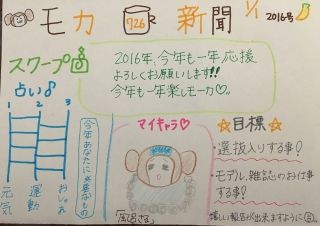 モカ 726R 新聞 1/1 2016号
2016年、今年も一年応援
よろしくお願いします!!
今年も一年楽しモカ♡。
スクープ
占い
1 2 3
元気
運動
おしゃれ
今年あなたに必要なもの
マイキャラ♡
「風呂さる」
☆目標☆
・選抜入りする事!
・モデル、雑誌のお仕事
する事!
嬉しい報告が出来ますように